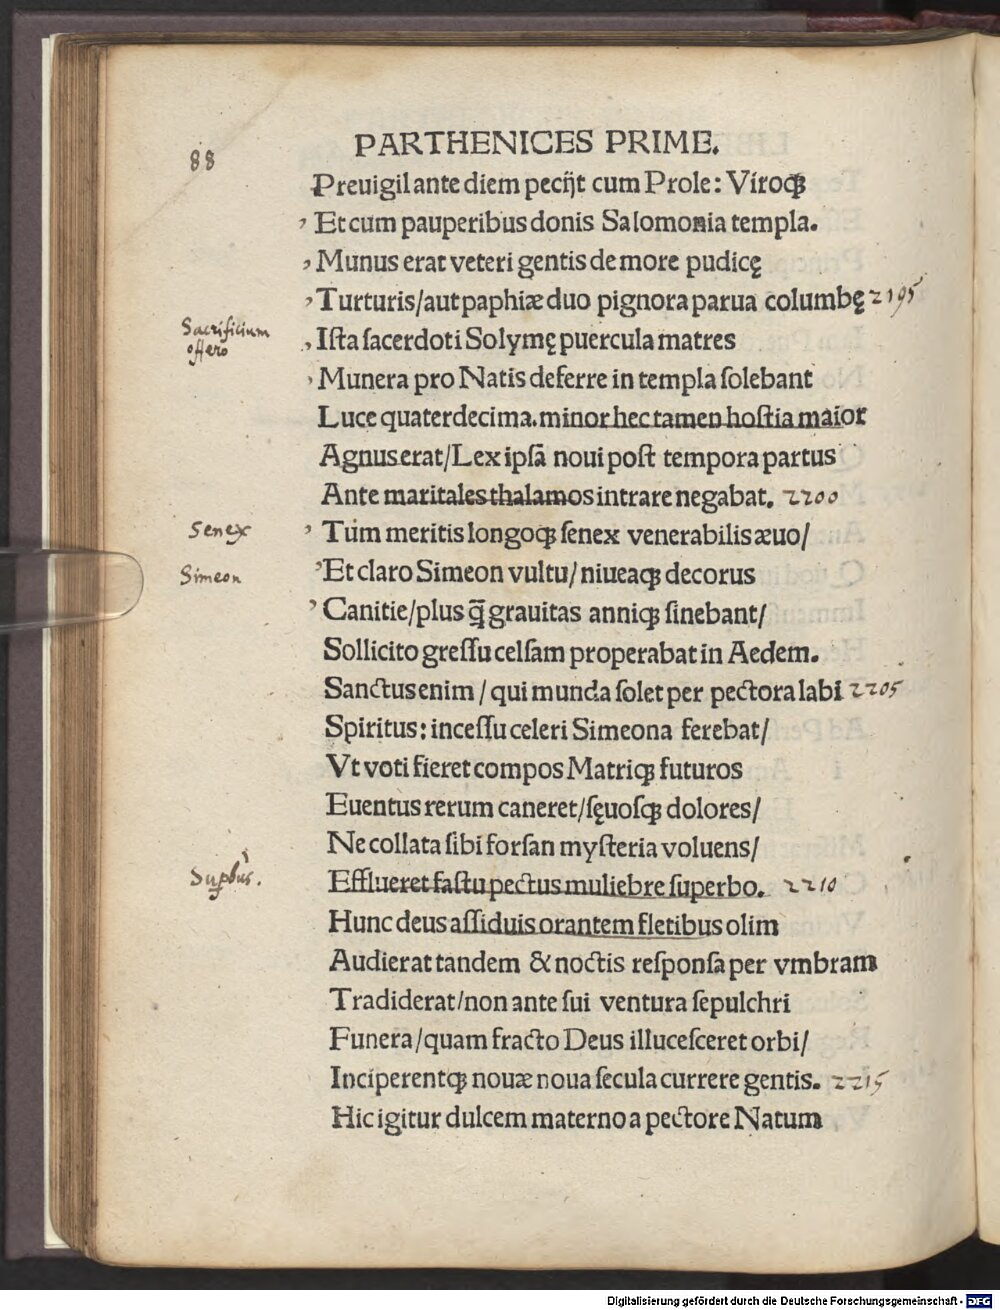 88
PARTHENICES PRIME.
Preuigil ante diem pecijt cum Prole: Viroqꝫ
, Et cum pauperibus donis Salomonia templa.
, Munus erat veteri gentis de more pudicę
, Turturis/aut paphiæ duo pignora parua columbę 2195
Sacrificium
offero
, Iſta ſacerdoti Solymę puercula matres
, Munera pro Natis deferre in templa ſolebant
Luce quaterdecima. minor hec tamen hoſtia maior
Agnus erat/Lex ipſã noui poſt tempora partus
Ante maritales thalamos intrare negabat. 2200
Senex
, Tum meritis longoqꝫ ſenex venerabilis æuo/
Simeon
, Et claro Simeon vultu/ niueaqꝫ decorus
, Canitie/plus q̃ grauitas anniqꝫ ſinebant/
Sollicito greſſu celſam properabat in Aedem.
Sanctus enim / qui munda ſolet per pectora labi 2205
Spiritus: inceſſu celeri Simeona ferebat/
Vt voti fieret compos Matriqꝫ futuros
Euentus rerum caneret/ſęuoſqꝫ dolores/
Ne collata ſibi forſan myſteria voluens/
Suꝑbus.
Efflueret faſtu pectus muliebre ſuperbo. 2210
Hunc deus aſſiduis orantem fletibus olim
Audierat tandem & noctis reſponſa per vmbram
Tradiderat/non ante ſui ventura ſepulchri
Funera/quam fracto Deus illuceſceret orbi/
Inciperentqꝫ nouæ noua ſecula currere gentis. 2215
Hic igitur dulcem materno a pectore Natum
Digitalisierung gefördert durch die Deutsche Forschungsgemeinschaft - DFG